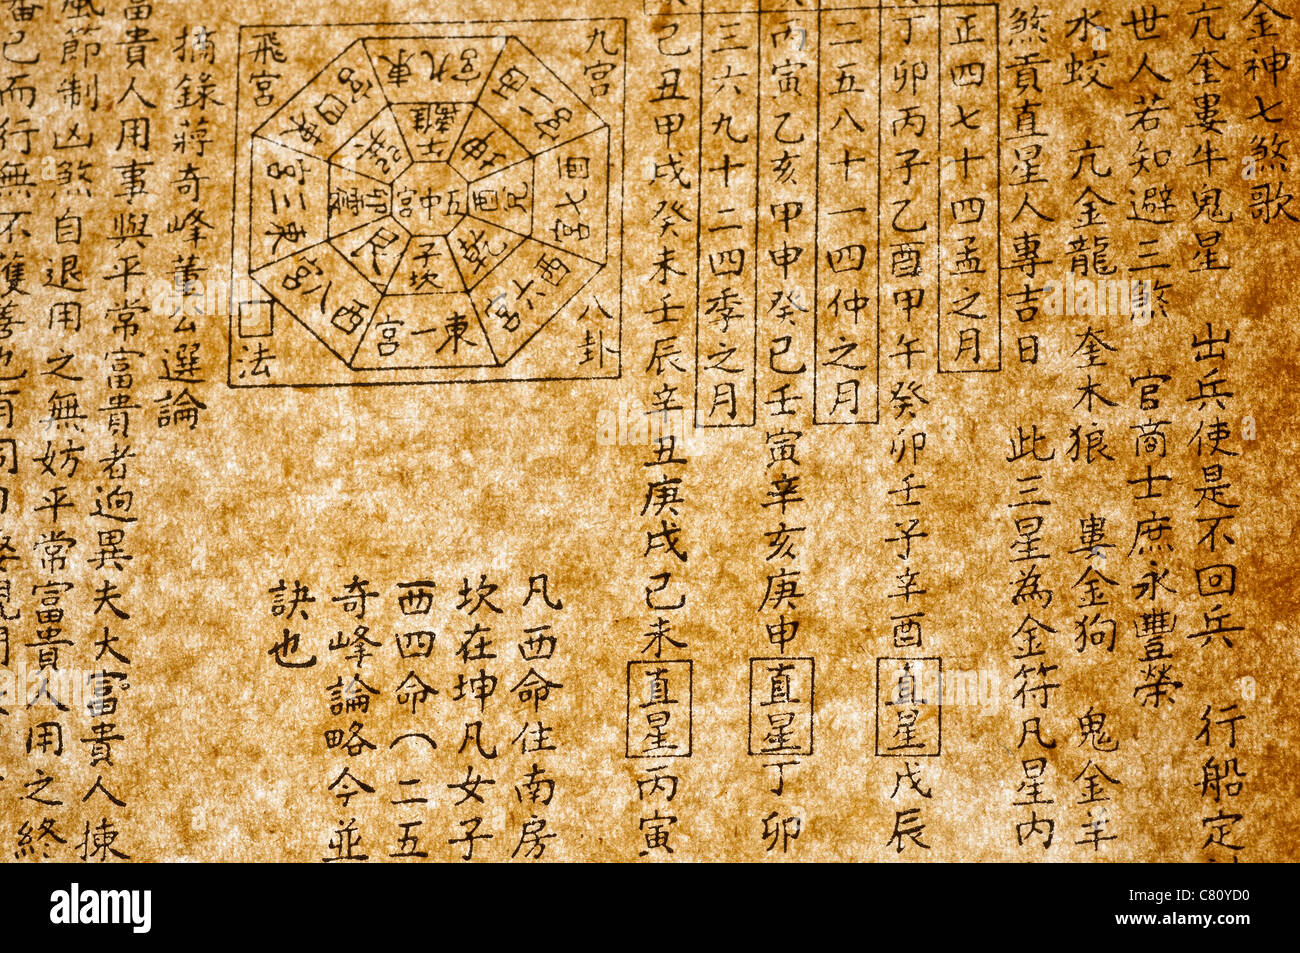 金神七煞歌
亢奎婁牛鬼星 出兵使是不回兵 行船定
世人若知避三煞 官商士庶永豐榮
水蛟 亢金龍 奎木狼 婁金狗 鬼金羊
煞貢直星人專吉日 此三星為金符凡星內
正四七十四孟之月
丁卯丙子乙酉甲午癸卯壬子辛酉直星戊辰
二五八十一四仲之月
丙寅乙亥甲申癸巳壬寅辛亥庚申直星丁卯
三六九十二四季之月
己丑甲戌癸未壬辰辛丑庚戌己未直星丙寅
九宮
八卦
飛宮
囗法
東九宮
西二宮
西七宮
西六宮
東一宮
西八宮
東三宮
東四宮
離
坤
酉兌
乾
子坎
艮
卯震
巽
五中宮
凡西命住南房
坎在坤凡女子
西四命（二五
奇峰論略今並
訣也
摘錄蔣奇峰董公選論
富貴人用事與平常富貴者迥異夫大富貴人揀
風節制凶煞自退用之無妨平常富貴人用之終
而行無不獲善也有同
alamy
Image ID: C80YD0
www.alamy.com